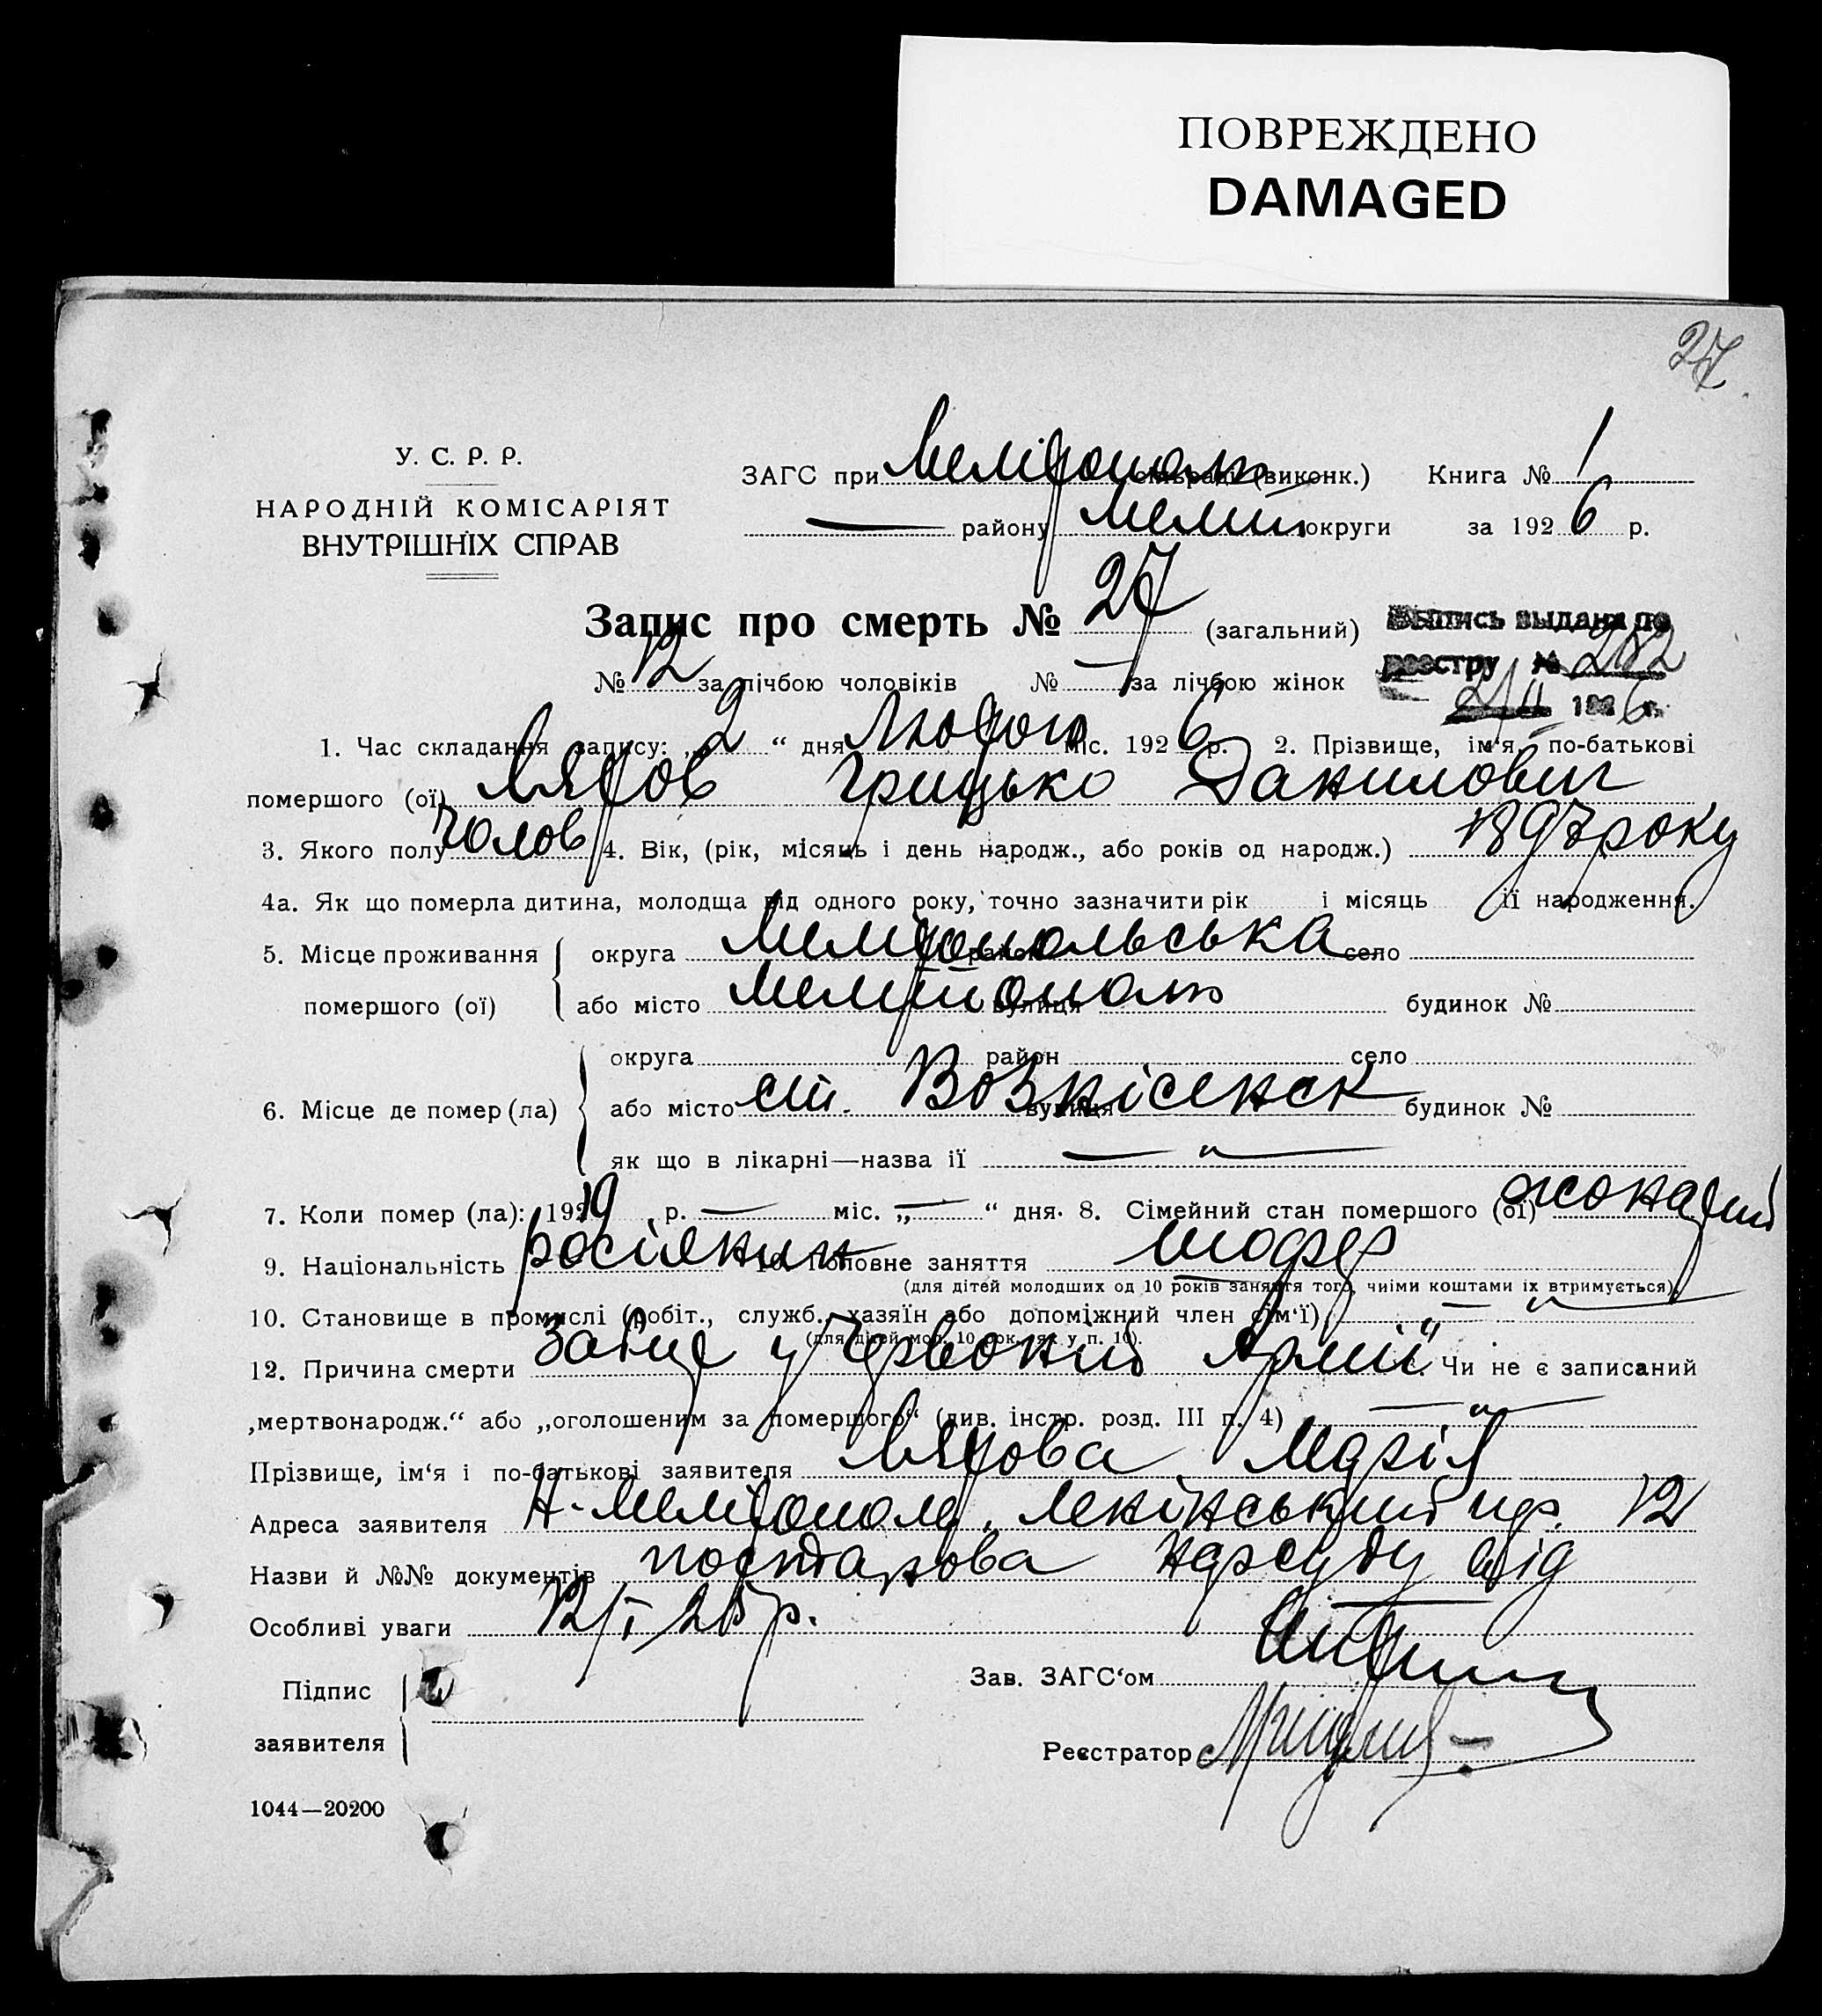 ПОВРЕЖДЕНО
DAMAGED
27.
У. С. Р. Р.
НАРОДНІЙ КОМІСАРІЯТ
ВНУТРІШНІХ СПРАВ
ЗАГС при Мелітополь сільраді (виконк.) Книга № 1
— району Меліт округи за 1926 р.
Запис про смерть № 27 (загальний)
Выпись выдана по
реестру № 282
2/II 1926 г.
№ 12 за лічбою чоловіків № — за лічбою жінок
1. Час складання запису: „2“ дня Лютого міс. 1926 р. 2. Прізвище, ім‘я, по-батькові
помершого (ої) Грицько Данилович
3. Якого полу чолов 4. Вік, (рік, місяць і день народж., або років од народж.) 1897 року
4а. Як що померла дитина, молодща від одного року, точно зазначити рік і місяць її народження.
5. Місце проживання помершого (ої) округа Мелітопольська район село
або місто Мелітополь вулиця будинок №
6. Місце де помер (ла) округа район село
або місто ст. Вознісенск вулиця будинок №
як що в лікарні—назва її — „ —
7. Коли помер (ла): 1919 р. — міс. „—“ дня. 8. Сімейний стан помершого (ої) жонатий
9. Національність росіянин 10. Головне заняття шофер
(для дітей молодших од 10 років заняття того, чиїми коштами їх втримується).
10. Становище в промислі (робіт., служб., хазяїн або допоміжний член сім‘ї) — „ —
(для дітей мол. 10 рок. як у п. 10).
12. Причина смерти у Червоний Армії Чи не є записаний
„мертвонародж.“ або „оголошеним за помершого“ (див. інстр. розд. III п. 4) — „ —
Прізвище, ім‘я і по-батькові заявителя Марія
Адреса заявителя Мелітополь, Ленінський пр. 12
Назви й №№ документів постанова нарсуду від
Особливі уваги 12/I 26 р.
Підпис заявителя
Зав. ЗАГС‘ом
Реєстратор
1044—20200